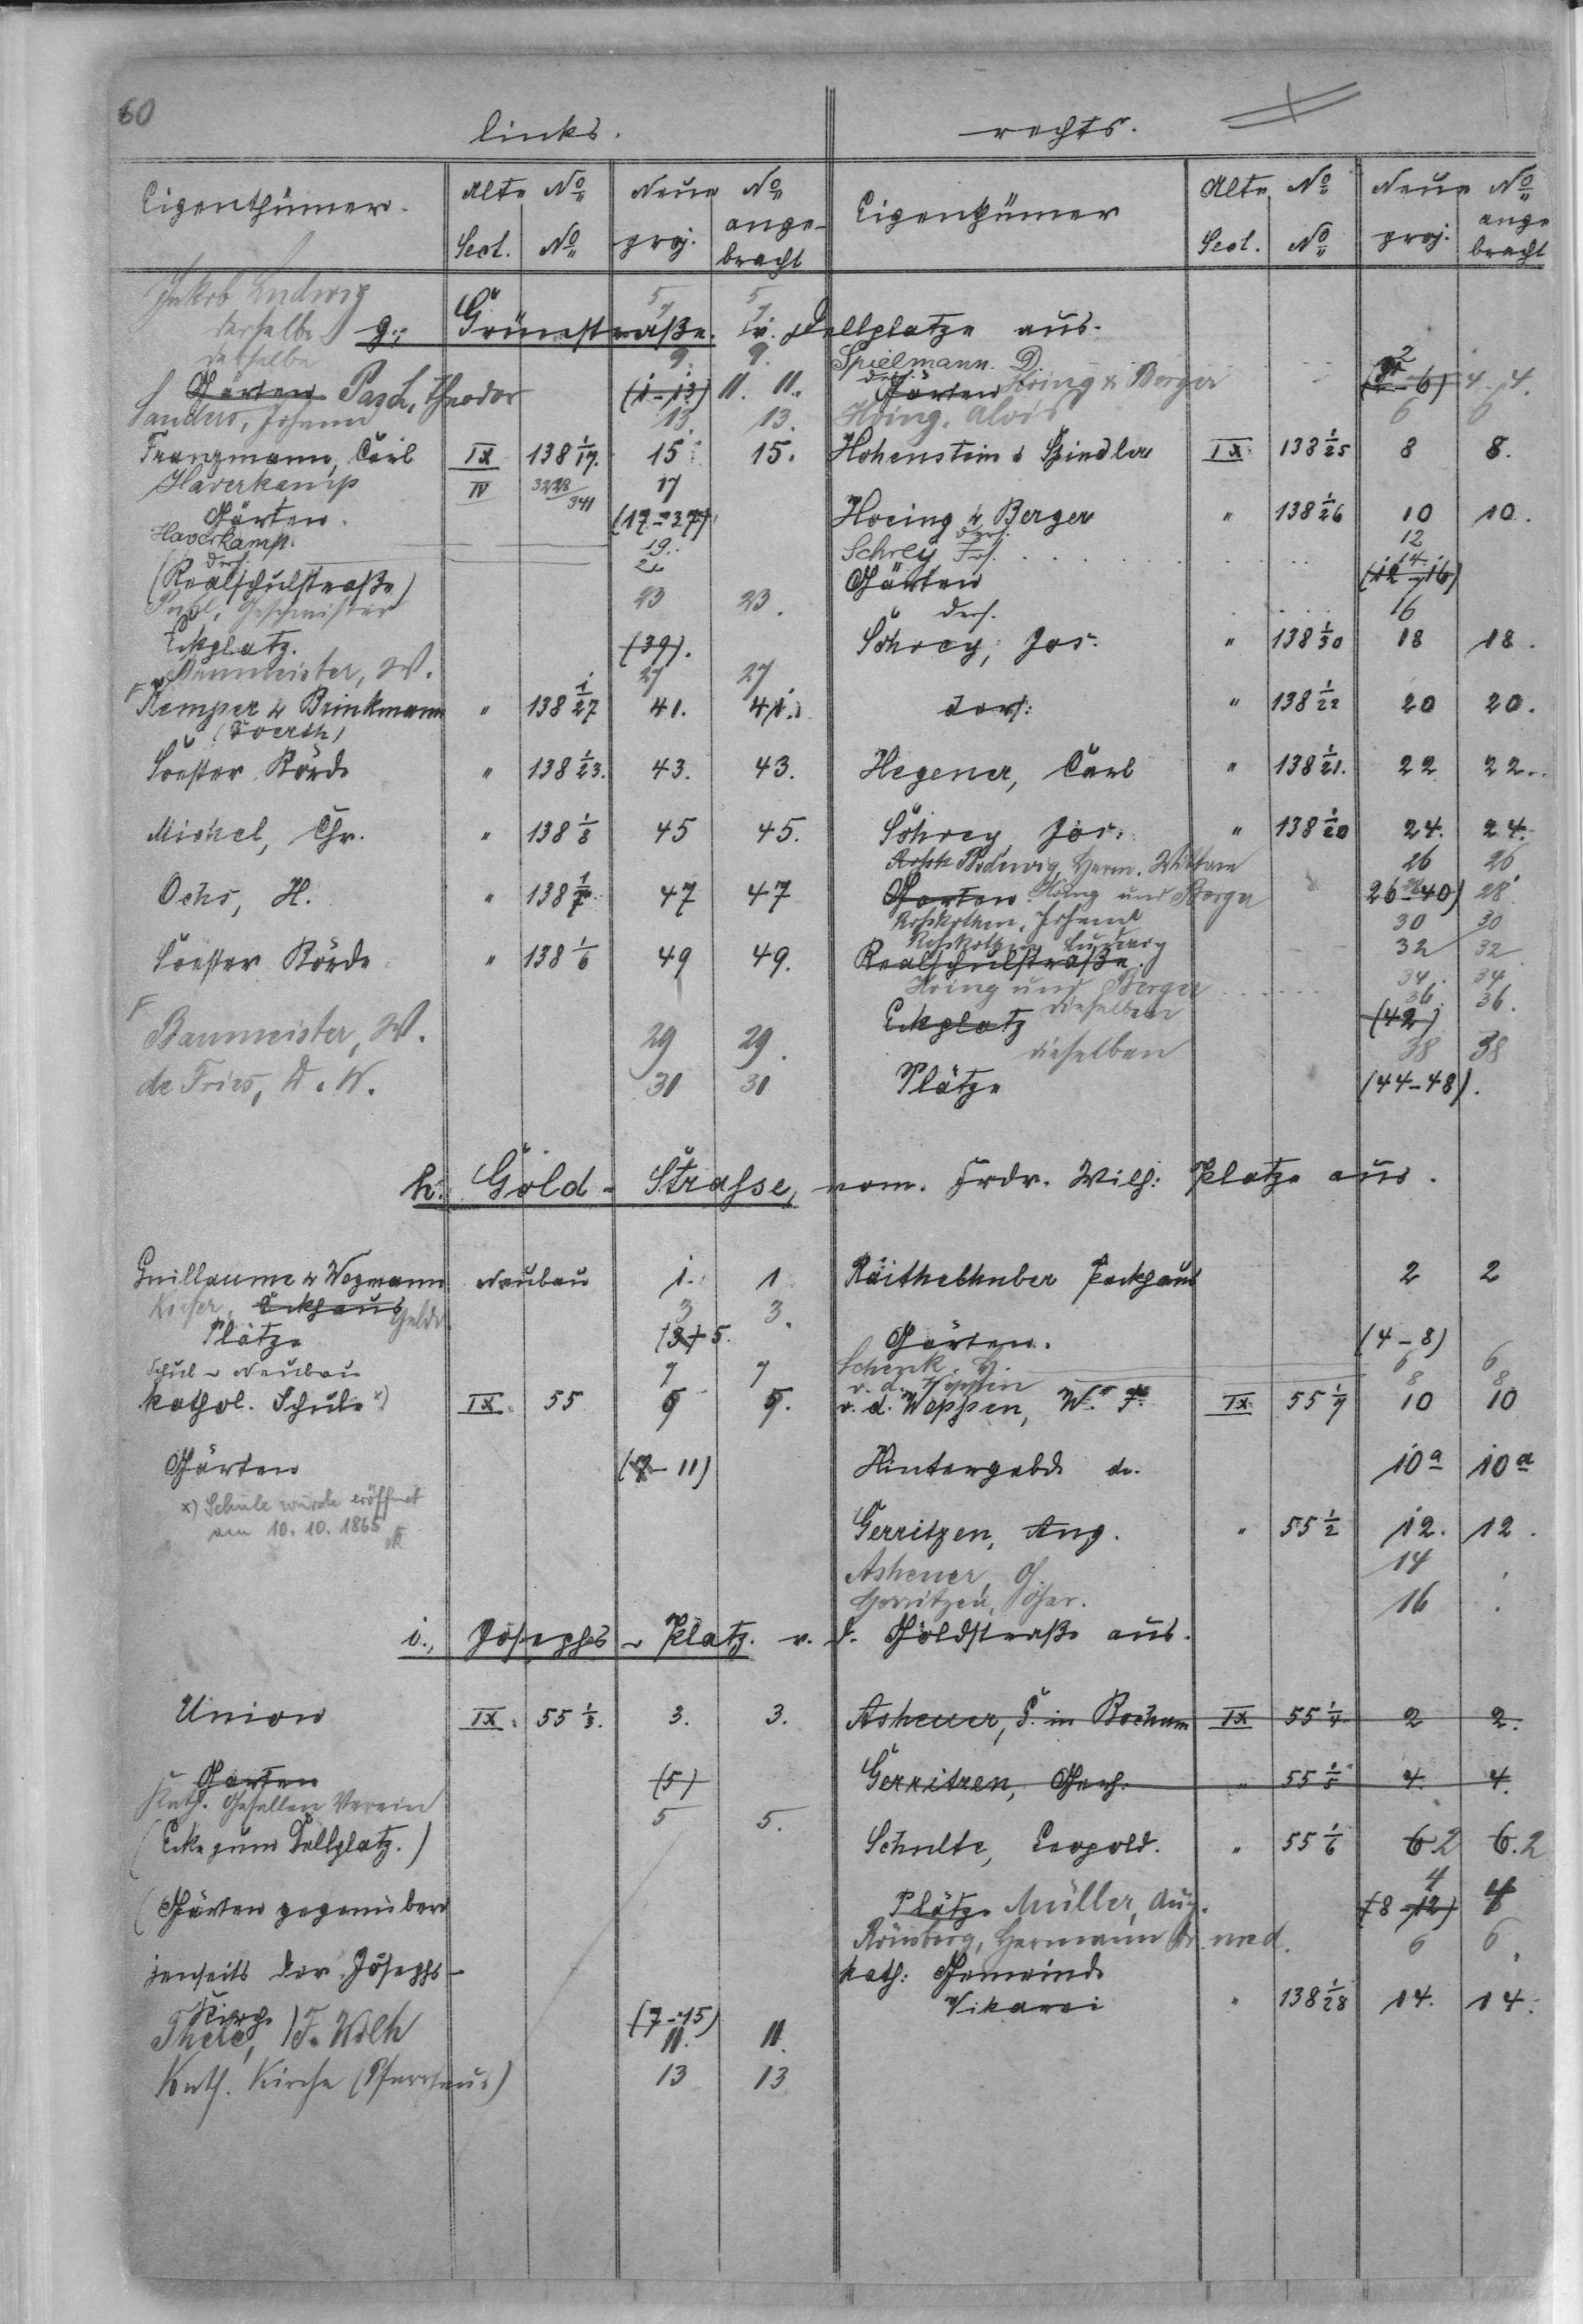 60
links. rechts.
Eigenthümer. Alte No Neue No Eigenthümer Alte No Neue No
Sect. No proj. angebracht Sect. No proj. angebracht
Jakob Ludwig 5 5
derselbe 7 7
g. Grünestraße. v. Dellplatze aus.
derselbe 9. 9. Spielmann. D. 2
Gärten Pasch, Theodor (1-13) 11. 11. Gärten Höing & Berger (2-6) 4 4.
Sanders, Johann 13. 13. Höing, Alois 6 6
Franzmann, Carl IX 138 1/17. 15. 15. Hohenstein & Spindler IX 138 1/25 8 8.
Haverkamp IV 3228/341 17
Gärten. (17-37) Hoeing & Berger " 138 1/26 10 10.
Haverkamp. 19. ders. 12
ders. 21 Schrey Jos. 14
(Realschulstraße) Gärten (12-16)
Geschwister 23 23. ders. 16
Eckplatz. (39). Schrey, Jos. " 138 1/30 18 18.
Baumeister, W. 27 27
Kemper & Brinkmann " 138 1/27 41. 41. ders: " 138 1/22 20 20.
Soester Börde " 138 1/23. 43. 43. Hegener, Carl " 138 1/21. 22 22.
Michel, Chr. " 138 1/8 45 45. Schrey Jos. " 138 1/20 24. 24.
Herm. Wittwe 26 26
Ochs, H. " 138 1/7 47 47 Garten Höing und Berger 26-40) 28
Roßkothen, Johann 30 30
Roßkothen, Ludwig 32 32
Soester Börde " 138 1/6 49 49. Realschulstraße.
Höing und Berger 34. 34
dieselben 36. 36.
Eckplatz (42)
Baumeister, W. 29 29. dieselben 38 38
de Fries, D. W. 31 31 Plätze (44-48).
h. Gold-Strasse, vom. Frdr. Wilh: Platze aus.
Guillaume & Wegmann Neubau 1. 1 Raithelhuber Packhaus 2 2
Kiefer, Eckhaus 3 3.
Plätze (3) 5. Gärten. (4-8)
Schul-Neubau 7 7 Schenk. H. 6 6
v. d. Weppen 8 8
kathol. Schule x) IX. 55 9 9. v. d. Weppen, W. F. IX 55 1/7 10 10
Gärten (7-11) Hintergebde do. 10a 10a
x) Schule wurde eröffnet
am 10. 10. 1865
Gerritzen, Aug. " 55 1/2 12. 12.
Asheuer, 14
Gerritzen, Gher. 16
i., Josephs-Platz. v. d. Goldstraße aus.
Union IX. 55 1/3. 3. 3. Asheuer, S. in Bochum IX 55 1/4 2 2.
Garten (5) Gerritzen, Gerh. " 55 1/5 4. 4.
Kath. Gesellen Verein 5 5.
(Ecke zum Dellplatz.) Schulte, Leopold. " 55 1/6 6 2 6. 2
4
(Gärten gegenüber Plätze Müller, Aug. (8-12) 4
Hermann Dr. med. 6 6.
jenseits der Josephs- kath: Gemeinde
Kirche (7-15) Vikarei " 138 1/28 14. 14.
F. Wilh 11. 11.
Kath. Kirche (Pfarrhaus) 13 13